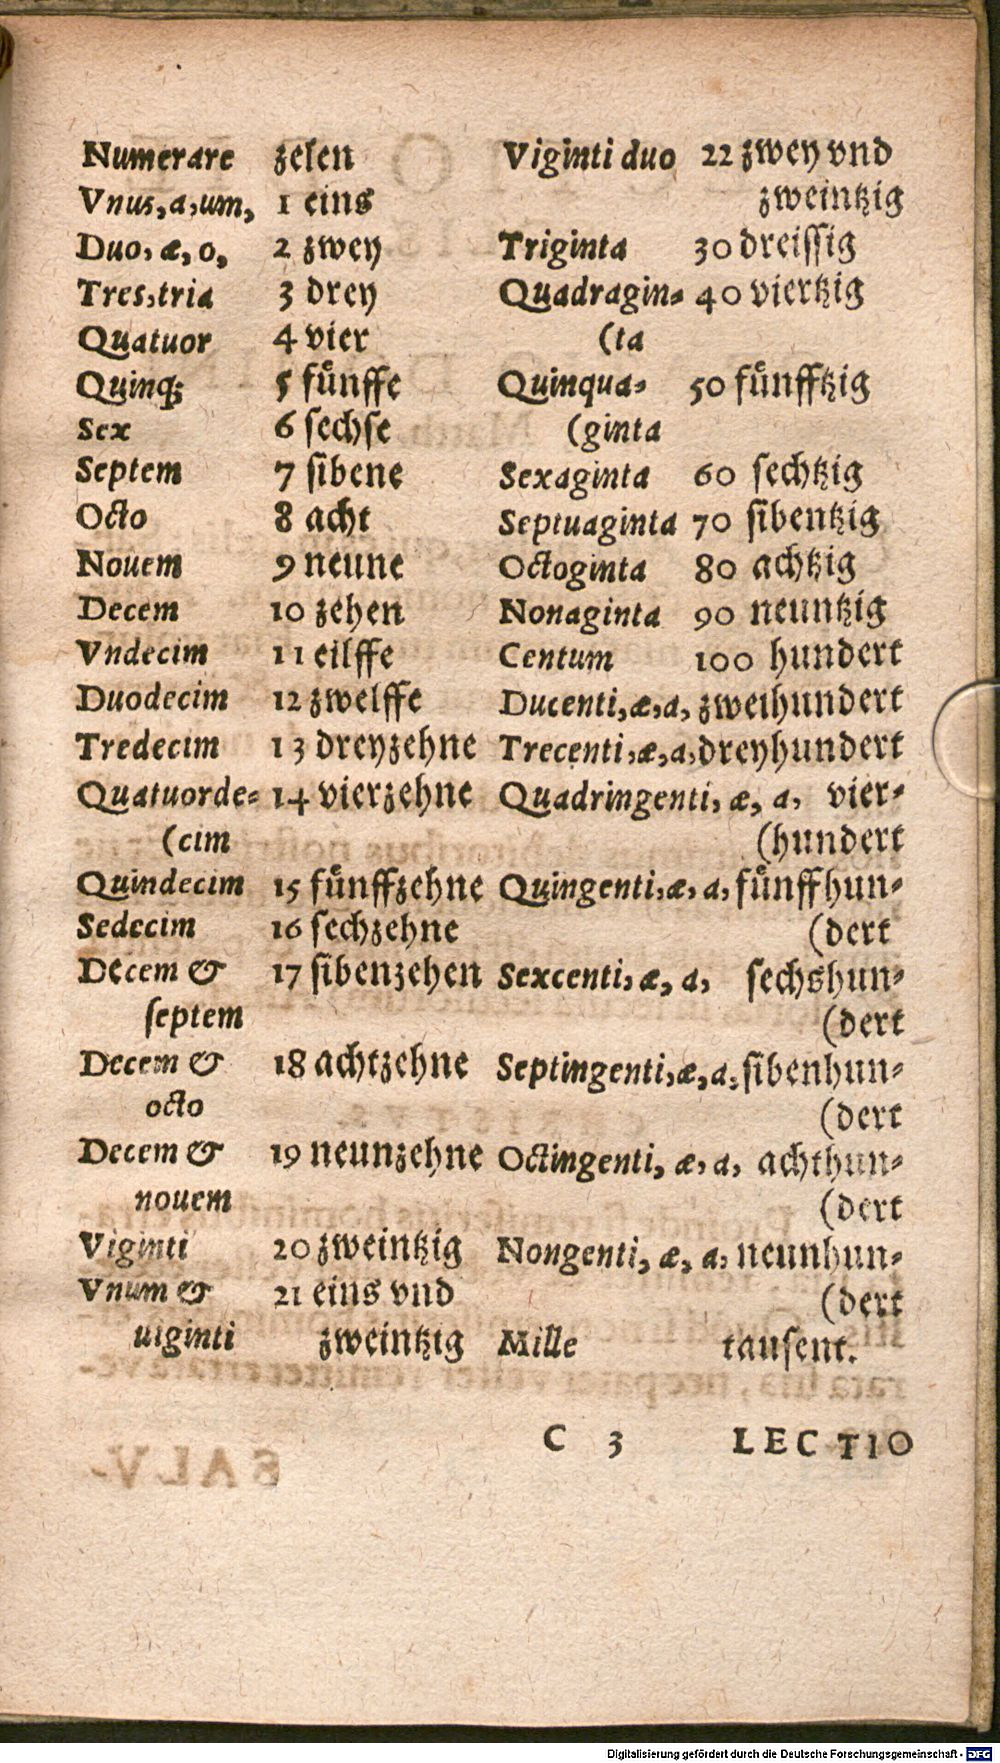 Numerare zelen
Vnus,a,um, 1 eins
Duo, æ, o, 2 zwey
Tres,tria 3 drey
Quatuor 4 vier
Quinq; 5 fünffe
Sex 6 sechse
Septem 7 sibene
Octo 8 acht
Nouem 9 neune
Decem 10 zehen
Vndecim 11 eilffe
Duodecim 12 zwelffe
Tredecim 13 dreyzehne
Quatuorde= 14 vierzehne
(cim
Quindecim 15 fünffzehne
Sedecim 16 sechzehne
Decem & 17 sibenzehen
septem
Decem & 18 achtzehne
octo
Decem & 19 neunzehne
nouem
Viginti 20 zweintzig
Vnum & 21 eins vnd
uiginti zweintzig
Viginti duo 22 zwey vnd
zweintzig
Triginta 30 dreissig
Quadragin= 40 viertzig
(ta
Quinqua= 50 fünfftzig
(ginta
Sexaginta 60 sechtzig
Septuaginta 70 sibentzig
Octoginta 80 achtzig
Nonaginta 90 neuntzig
Centum 100 hundert
Ducenti,æ,a, zweihundert
Trecenti,æ,a, dreyhundert
Quadringenti, æ, a, vier=
(hundert
Quingenti,æ, a, fünffhun=
(dert
Sexcenti, æ, a, sechshun=
(dert
Septingenti,æ,a, sibenhun=
(dert
Octingenti, æ, a, achthun=
(dert
Nongenti, æ, a, neunhun=
(dert
Mille tausent.
C 3 LECTIO
Digitalisierung gefördert durch die Deutsche Forschungsgemeinschaft - DFG